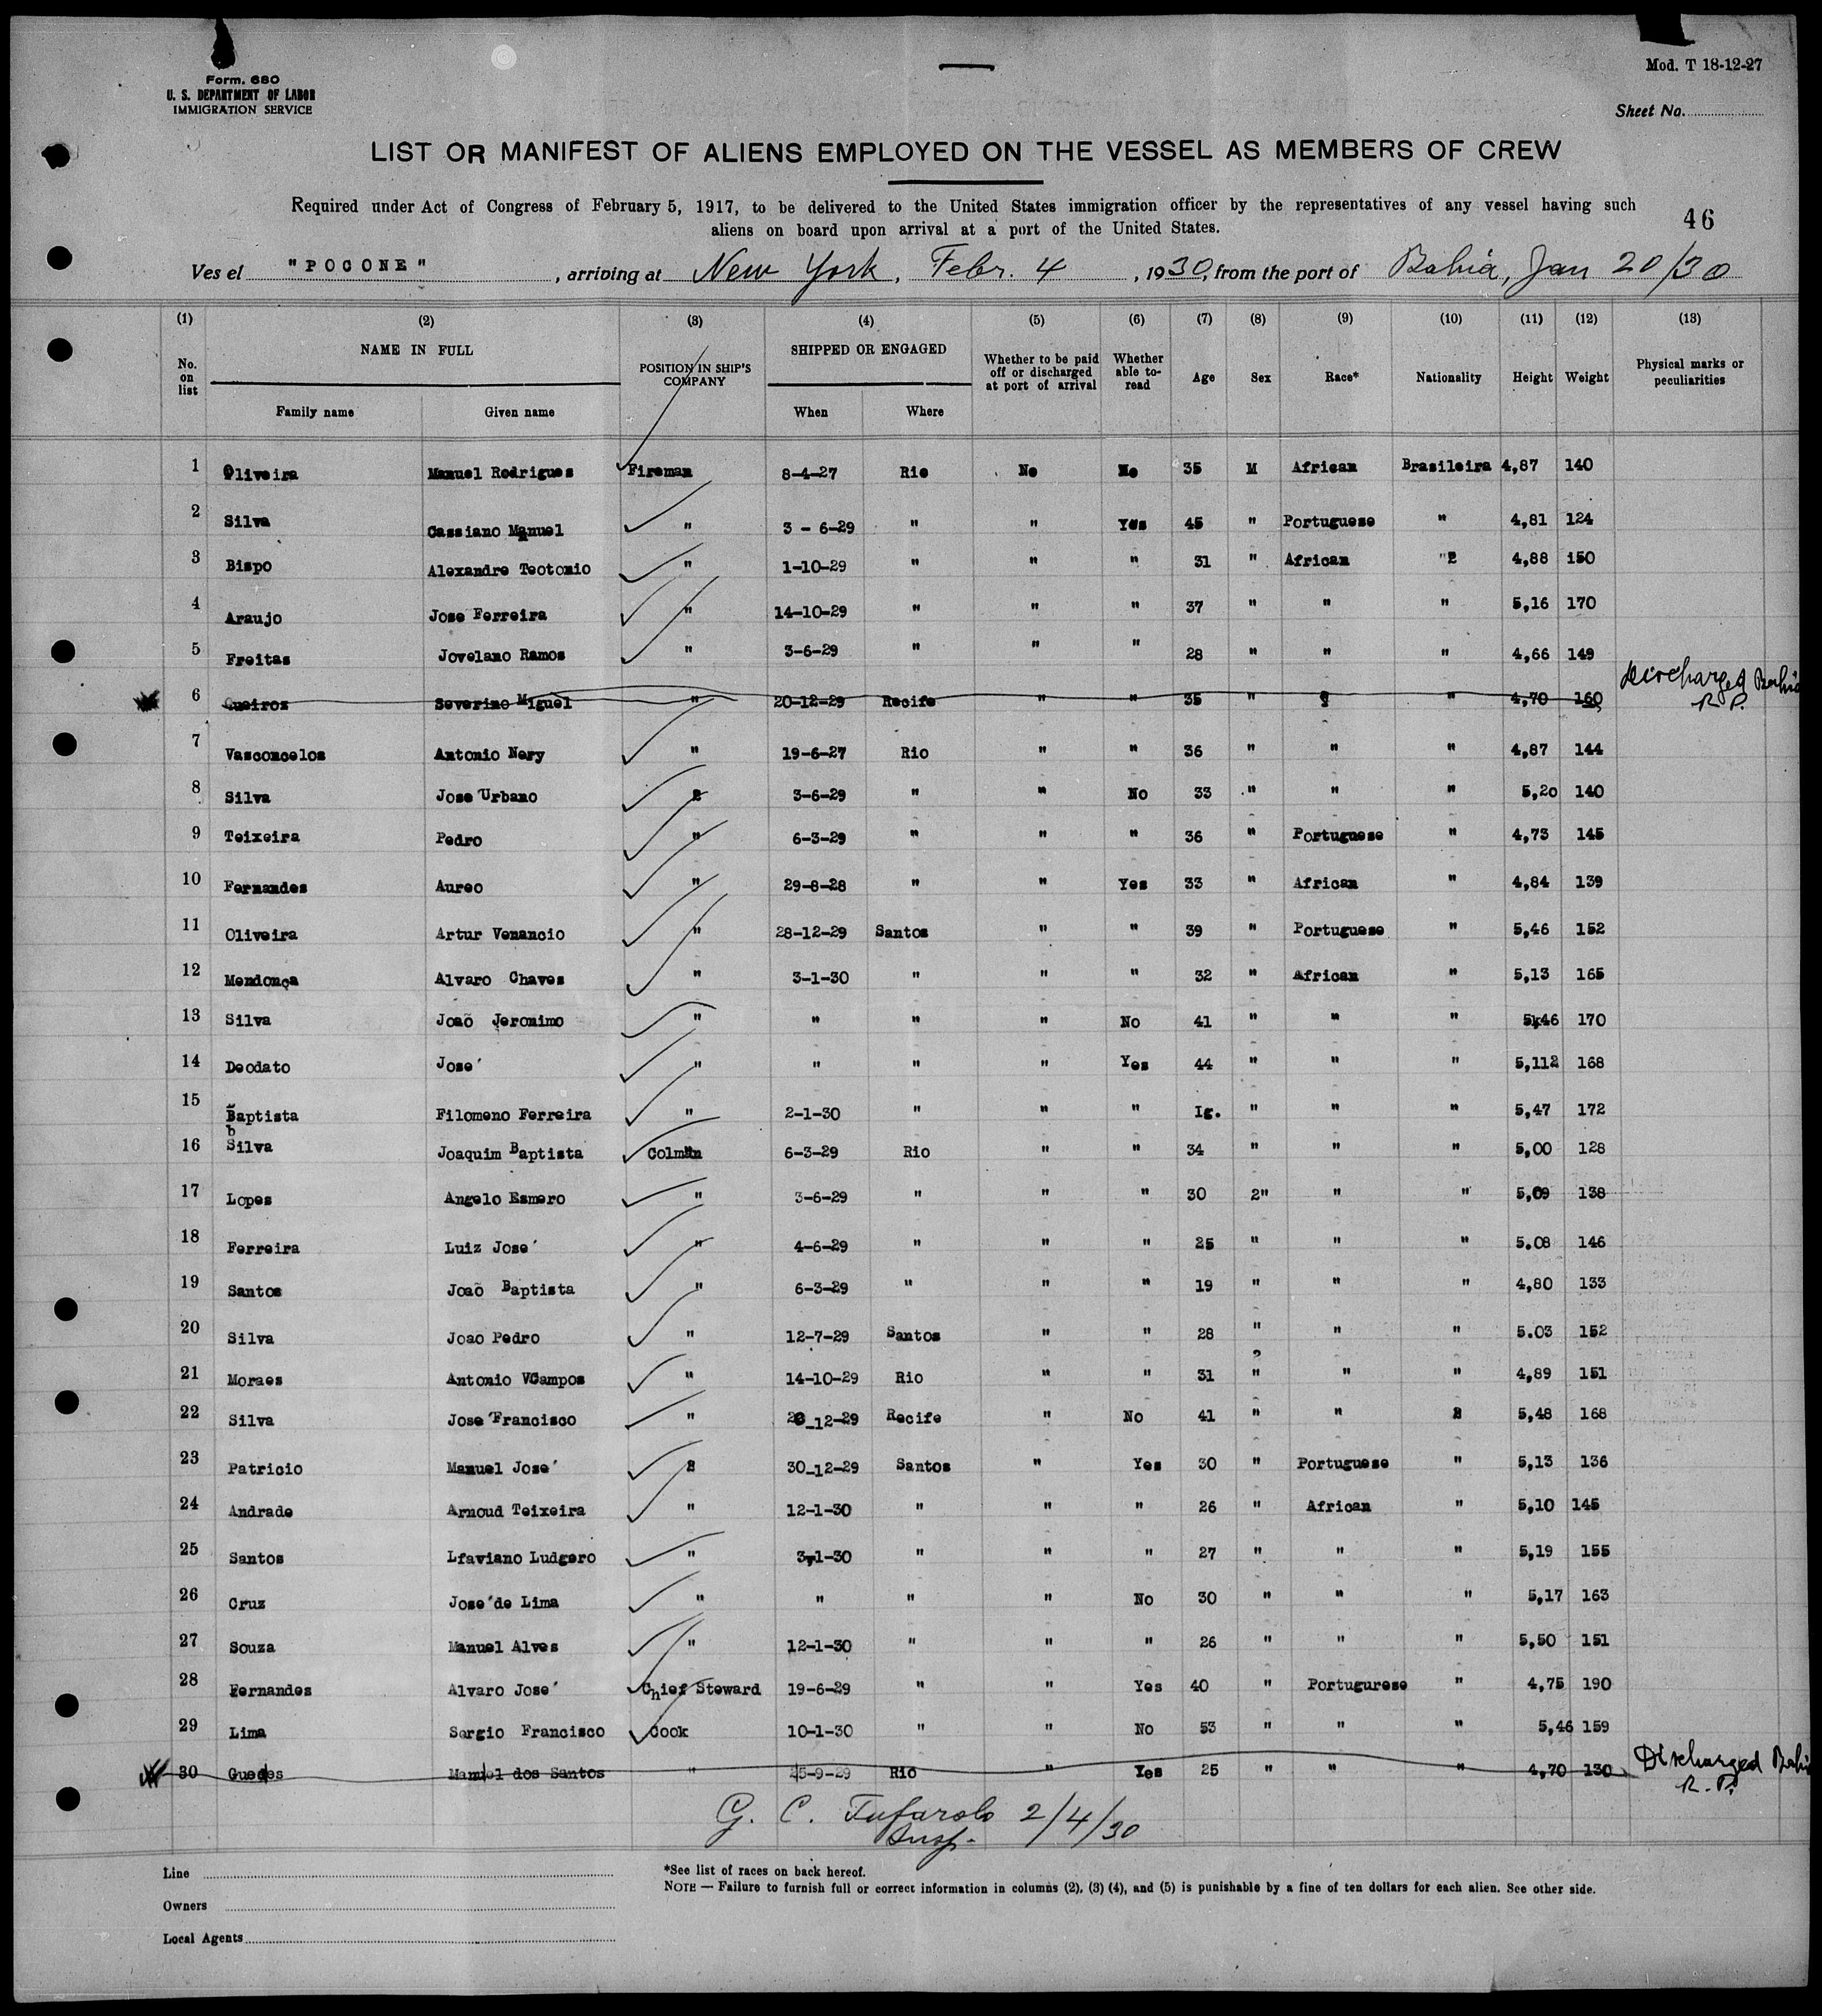 Form. 680
U. S. DEPARTMENT OF LABOR
IMMIGRATION SERVICE
Mod. T 18-12-27
Sheet No.
LIST OR MANIFEST OF ALIENS EMPLOYED ON THE VESSEL AS MEMBERS OF CREW
Required under Act of Congress of February 5, 1917, to be delivered to the United States immigration officer by the representatives of any vessel having such
aliens on board upon arrival at a port of the United States.
46
Ves el "POCONE", arriving at New York, Febr. 4, 1930, from the port of Bahia, Jan 20/30
(1) (2) (3) (4) (5) (6) (7) (8) (9) (10) (11) (12) (13)
No. on list NAME IN FULL Family name Given name POSITION IN SHIP'S COMPANY SHIPPED OR ENGAGED When Where Whether to be paid off or discharged at port of arrival Whether able to- read Age Sex Race* Nationality Height Weight Physical marks or peculiarities
1 Oliveira Manuel Rodrigues Fireman 8-4-27 Rio No No 35 M African Brasileira 4,87 140
2 Silva Cassiano Manuel " 3 - 6-29 " " Yes 45 " Portuguese " 4,81 124
3 Bispo Alexandre Teotonio " 1-10-29 " " " 31 " African "2 4,88 150
4 Araujo Jose Ferreira " 14-10-29 " " " 37 " " " 5,16 170
5 Freitas Jovelano Ramos " 3-6-29 " " " 28 " " " 4,66 149
6 Queiroz Severino Miguel " 20-12-29 Recife " " 35 " 2 " 4,70 160 Discharged Bahia R P.
7 Vasconcelos Antonio Nery " 19-6-27 Rio " " 36 " " " 4,87 144
8 Silva Jose Urbano 2 3-6-29 " " No 33 " " " 5,20 140
9 Teixeira Pedro " 6-3-29 " " " 36 " Portuguese " 4,73 145
10 Fernandes Aureo " 29-8-28 " " Yes 33 " African " 4,84 139
11 Oliveira Artur Venancio " 28-12-29 Santos " " 39 " Portuguese " 5,46 152
12 Mendonça Alvaro Chaves " 3-1-30 " " " 32 " African " 5,13 165
13 Silva Joaõ Jeronimo " " " " No 41 " " " 5,46 170
14 Deodato Jose' " " " " Yes 44 " " " 5,112 168
15 Baptista Filomeno Ferreira " 2-1-30 " " " Ig. " " " 5,47 172
16 Silva Joaquim Baptista Colman 6-3-29 Rio " " 34 " " " 5,00 128
17 Lopes Angelo Esmero " 3-6-29 " " " 30 2" " " 5,09 138
18 Ferreira Luiz Jose' " 4-6-29 " " " 25 " " " 5.08 146
19 Santos Joaõ Baptista " 6-3-29 " " " 19 " " " 4,80 133
20 Silva Joao Pedro " 12-7-29 Santos " " 28 " " " 5.03 152
21 Moraes Antonio VCampos " 14-10-29 Rio " " 31 " " " 4,89 151
22 Silva Jose' Francisco " 20_12-29 Recife " No 41 " " 2 5,48 168
23 Patricio Manuel Jose' 2 30_12-29 Santos " Yes 30 " Portuguese " 5,13 136
24 Andrade Arnoud Teixeira " 12-1-30 " " " 26 " African " 5,10 145
25 Santos Lfaviano Ludgero " 3-1-30 " " " 27 " " " 5,19 155
26 Cruz Jose' de Lima " " " " No 30 " " " 5,17 163
27 Souza Manuel Alves " 12-1-30 " " " 26 " " " 5,50 151
28 Fernandes Alvaro Jose' Chief Steward 19-6-29 " " Yes 40 " Portugurese " 4,75 190
29 Lima Sergio Francisco Cook 10-1-30 " " No 53 " " " 5,46 159
30 Guedes Manuel dos Santos " 25-9-29 Rio " Yes 25 " " " 4,70 130 Discharged Bahia R. P.
G. C. Tufarolo 2/4/30
Insp.
Line
*See list of races on back hereof.
NOTE — Failure to furnish full or correct information in columns (2), (3) (4), and (5) is punishable by a fine of ten dollars for each alien. See other side.
Owners
Local Agents